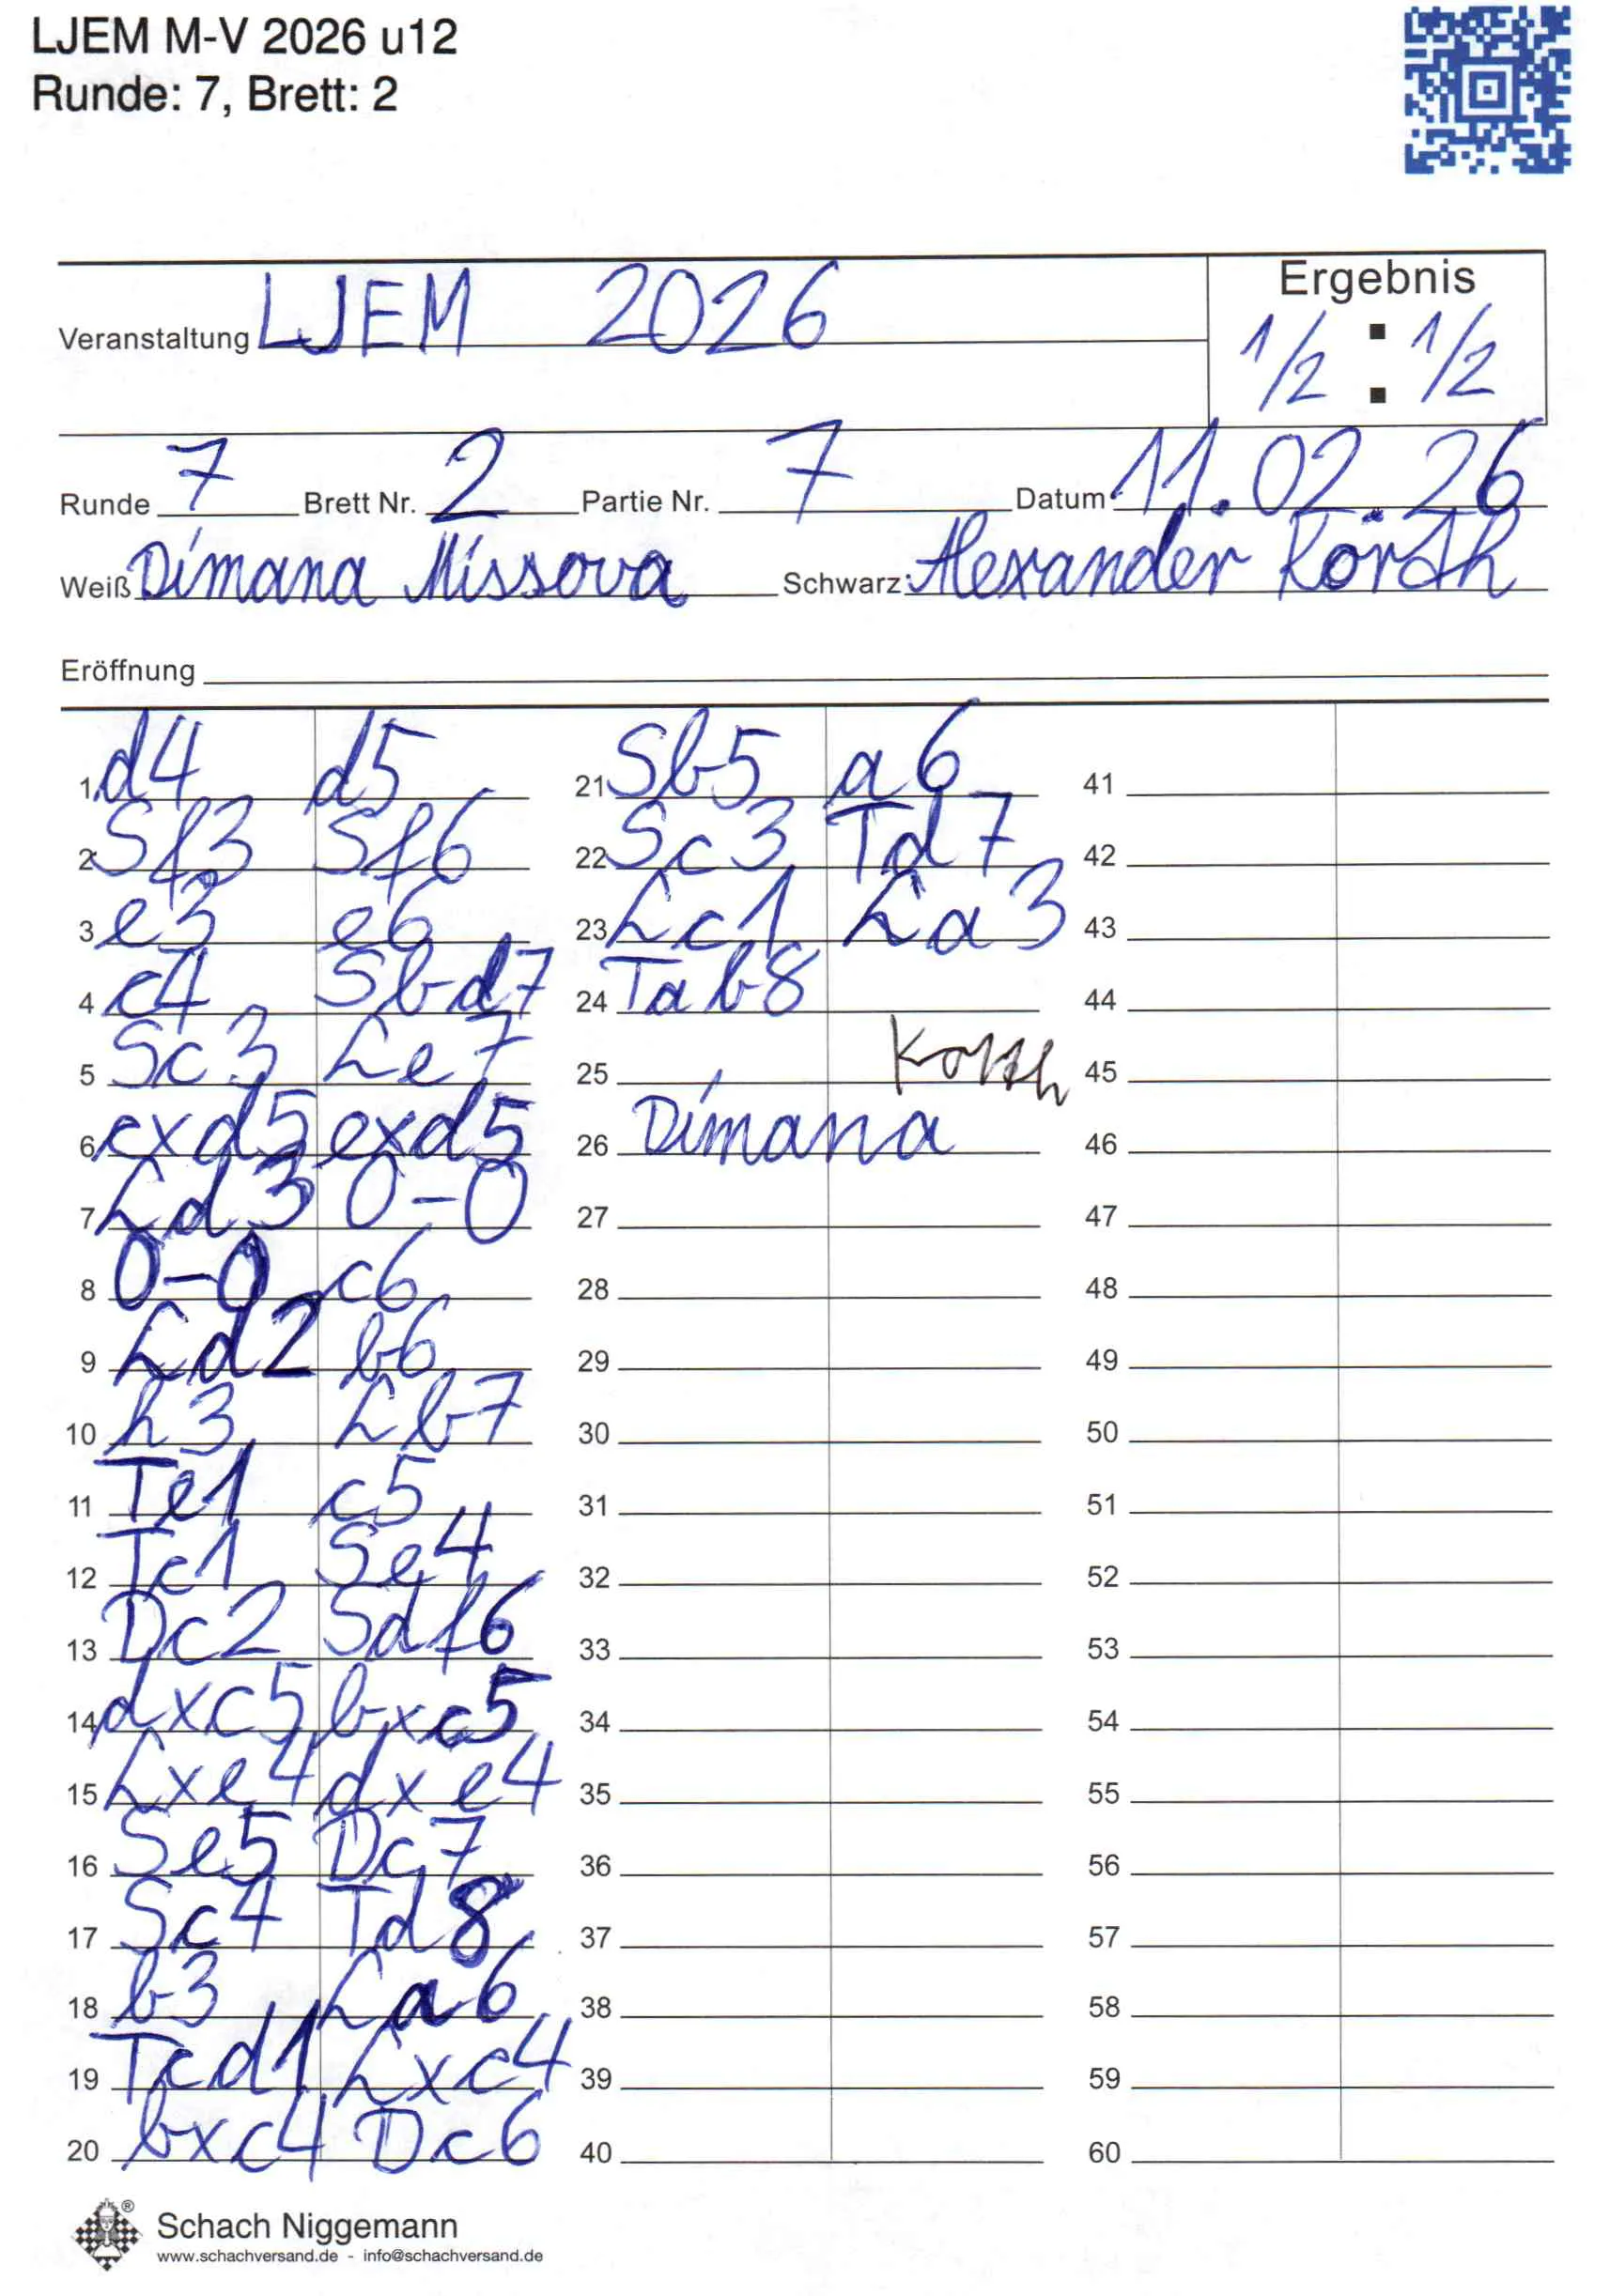 LJEM M-V 2026 u12
Runde: 7, Brett: 2
Veranstaltung LJEM 2026
Ergebnis
1/2 : 1/2
Runde 7 Brett Nr. 2 Partie Nr. 7 Datum 11.02.26
Weiß Dimana Missova Schwarz: Alexander Körth
Eröffnung
1 d4 d5
2 Sf3 Sf6
3 e3 e6
4 c4 Sbd7
5 Sc3 Le7
6 cxd5 exd5
7 Ld3 0-0
8 0-0 c6
9 Ld2 b6
10 h3 Lb7
11 Te1 c5
12 Tc1 Se4
13 Dc2 Sdf6
14 dxc5 bxc5
15 Lxe4 dxe4
16 Se5 Dc7
17 Sc4 Td8
18 b3 La6
19 Tcd1 Lxc4
20 bxc4 Dc6
21 Sb5 a6
22 Sc3 Td7
23 Lc1 La3
24 Tab8
25
26 Dimana
27
28
29
30
31
32
33
34
35
36
37
38
39
40
41
42
43
44
45
46
47
48
49
50
51
52
53
54
55
56
57
58
59
60
Schach Niggemann
www.schachversand.de - info@schachversand.de